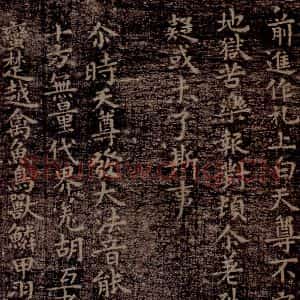 前進作礼上白天尊不
地獄苦樂報對頃尒
疑或大了斯事
尒時天尊發大法音能
十方無量代界羗胡互
楚越禽魚鳥獸鱗甲羽